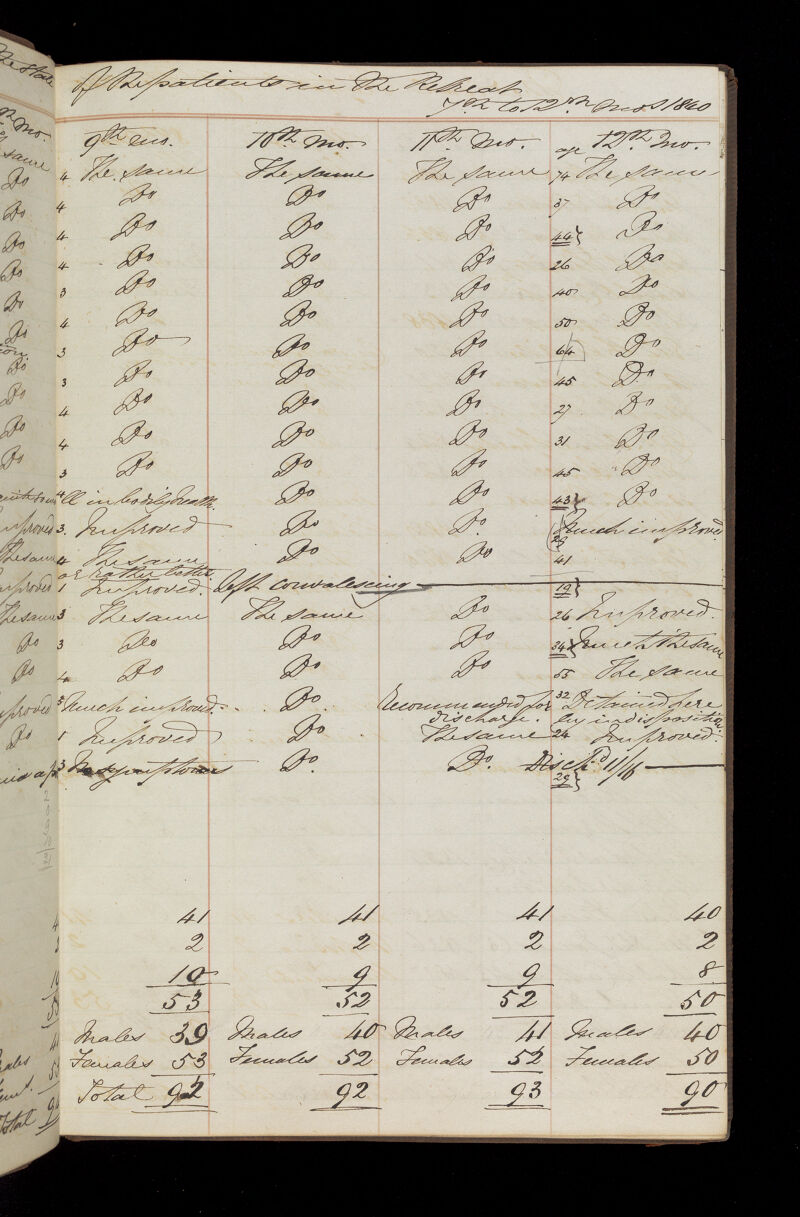 of the patients in the Retreat
7th to 12th mos 1840
9th mo. 10th mo. 11th mo. age 12th mo.
4 The same The same The same 74 The same
4 Do Do Do 37 Do
4 Do Do Do 44} Do
4 Do Do Do 26 Do
3 Do Do Do 40 Do
4 Do Do Do 50 Do
3 Do Do Do 64 Do
3 Do Do Do 45 Do
4 Do Do Do 27 Do
4 Do Do Do 31 Do
3 Do Do Do 45 Do
4 Ill in bodily health. Do Do 43} Do
3. Improved Do Do. 29 Much improved
4 The same Do Do 41
or rather better
1 Improved. Left convalescing 19}
3 The same The same Do 26 Improved.
3 Do Do Do 34} Much the same
4 Do Do Do 55 The same
3 Much improved. Do. Recommended for 32 Detained here
discharge. by indisposition.
1 Improved Do The same 24 Improved.
3 Do. Do. Disch'd 11/16
29}
41 41 41 40
2 2 2 2
10 9 9 8
53 52 52 50
Males 39 Males 40 Males 41 Males 40
Females 53 Females 52 Females 52 Females 50
Total 92 92 93 90